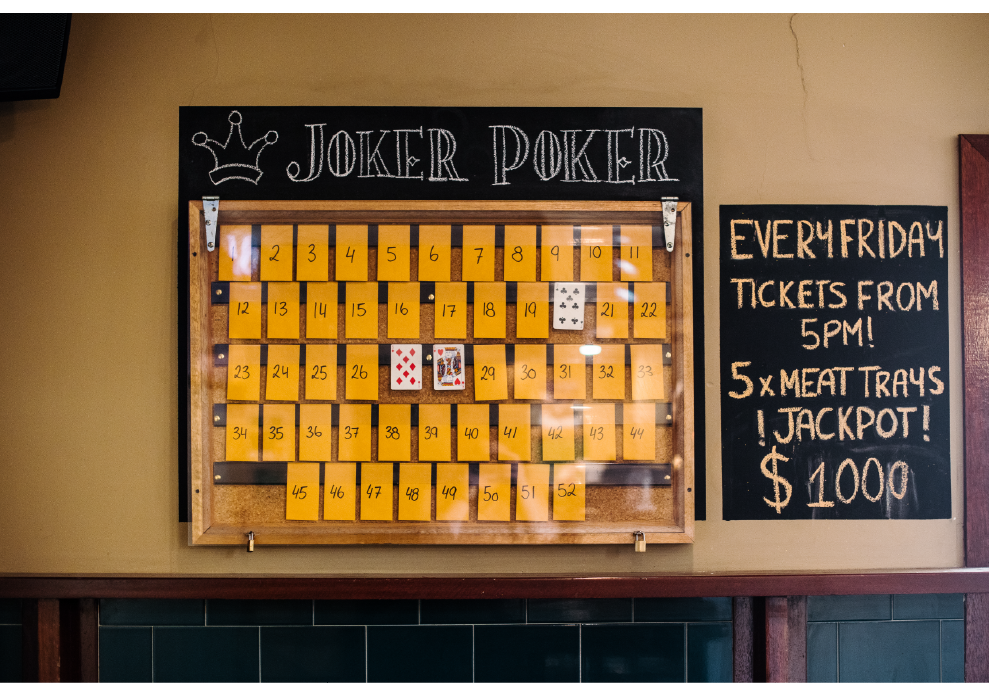 JOKER POKER
1 2 3 4 5 6 7 8 9 10 11
12 13 14 15 16 17 18 19 21 22
23 24 25 26 29 30 31 32 33
34 35 36 37 38 39 40 41 42 43 44
45 46 47 48 49 50 51 52
EVERY FRIDAY
TICKETS FROM
5PM!
5 x MEAT TRAYS
! JACKPOT!
$ 1000